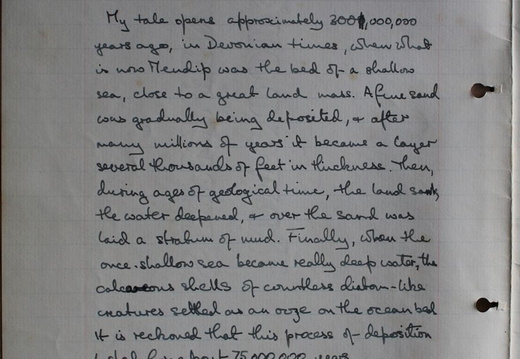 My tale opens approximately 300,000,000
years ago, in Devonian times, when what
is now Mendip was the bed of a shallow
sea, close to a great land mass. A fine sand
was gradually being deposited, & after
many millions of years it became a layer
several thousands of feet in thickness. Then,
during ages of geological time, the land sank,
the water deepened, & over the sand was
laid a stratum of mud. Finally, when the
once-shallow sea became really deep water, the
calcareous shells of countless diatom-like
creatures settled as an ooze on the ocean bed
It is reckoned that this process of deposition
about 75,000,000 years